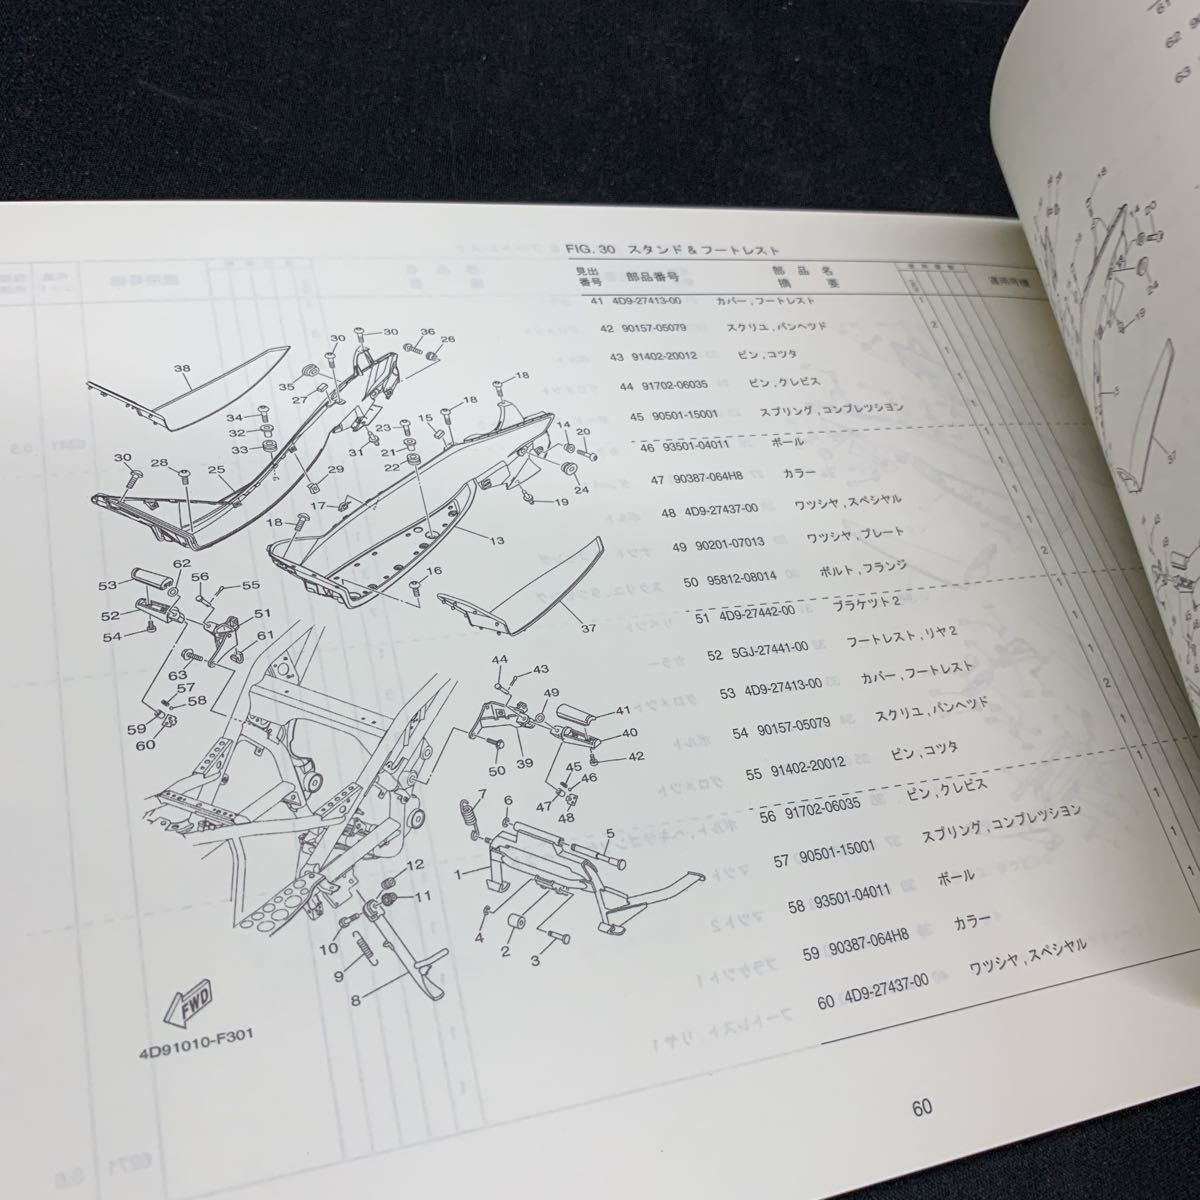 FIG. 30 スタンド&フートレスト
見出番号 部品番号 部品名 摘要 適用号機
41 4D9-27413-00 カバー,フートレスト 1
42 90157-05079 スクリユ,パンヘツド 2
43 91402-20012 ピン,コツタ 1
44 91702-06035 ピン,クレビス 1
45 90501-15001 スプリング,コンプレツシヨン 1
46 93501-04011 ボール 1
47 90387-064H8 カラー 1
48 4D9-27437-00 ワツシヤ,スペシヤル 1
49 90201-07013 ワツシヤ,プレート 1
50 95812-08014 ボルト,フランジ 2
51 4D9-27442-00 ブラケツト2 1
52 5GJ-27441-00 フートレスト,リヤ2 1
53 4D9-27413-00 カバー,フートレスト 1
54 90157-05079 スクリユ,パンヘツド 2
55 91402-20012 ピン,コツタ 1
56 91702-06035 ピン,クレビス 1
57 90501-15001 スプリング,コンプレツシヨン 1
58 93501-04011 ボール 1
59 90387-064H8 カラー 1
60 4D9-27437-00 ワツシヤ,スペシヤル 1
38
30
30
36
26
35
27
18
34
32
33
18
15
23
21
22
14
20
30
28
25
31
29
17
19
24
18
13
16
37
53
62
56
55
52
51
54
61
63
57
58
59
60
44
43
49
41
40
42
39
50
45
46
47
48
7
6
5
1
12
11
4
2
3
10
9
8
FWD
4D91010-F301
60
61
62
63
18
19
37